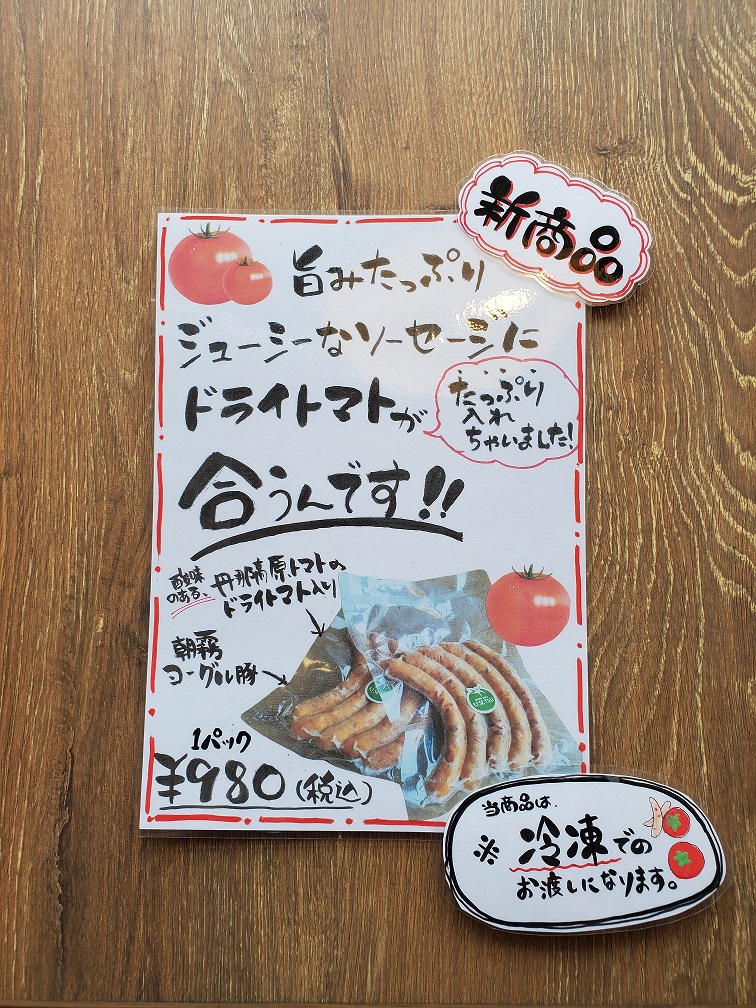 新商品
旨みたっぷり
ジューシーなソーセージに
ドライトマトが
たっぷり
入れ
ちゃいました!
合うんです!!
酸味
のある、
丹那高原トマトの
ドライトマト入り
朝霧
ヨーグル豚
1パック
¥980(税込)
当商品は、
※冷凍での
お渡しになります。